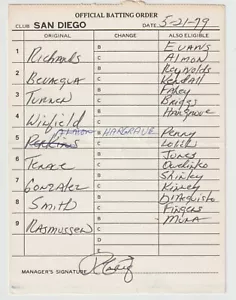 OFFICIAL BATTING ORDER
CLUB SAN DIEGO DATE 5-21-79
ORIGINAL CHANGE ALSO ELIGIBLE
1 Richards B Evans
C Almon
2 Bevacqua B Reynolds
C Kendall
3 Turner B Fahey
C Briggs
4 Winfield B Hargrove
C
5 Perkins ALMON B HARGRAVE Perry
C Lolich
6 Tenace B Jones
C Owchinko
7 Gonzalez B Shirley
C Kinney
8 Smith B D'Acquisto
C Fingers
9 Rasmussen B Mura
C
D
E
MANAGER'S SIGNATURE